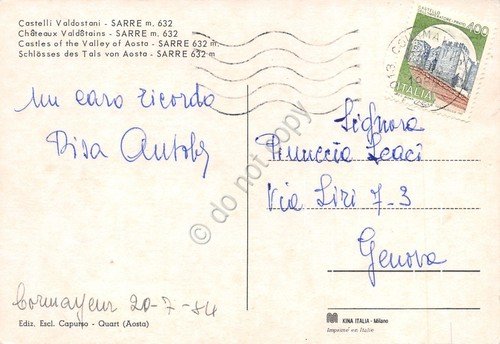 Castelli Valdostani - SARRE m. 632
Châteaux Valdôtains - SARRE m. 632
Castles of the Valley of Aosta - SARRE 632 m.
Schlösses des Tals von Aosta - SARRE 632 m
400
ITALIA
Un caro ricordo
Signora
Pinuccia Leaci
Via Liri 7-3
Genova
do not copy
Cormayeur 20-7-84
Ediz. Escl. Capurso - Quart (Aosta)
KINA ITALIA - Milano
Imprimé en Italie